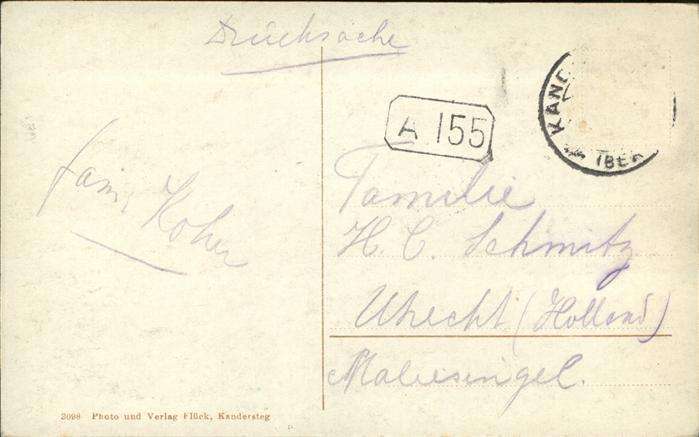 Drucksache
KAND
A 155
Fam. Koher
Familie
H. C. Schmitz
Utrecht (Holland)
Maliesingel.
3098 Photo und Verlag Flück, Kandersteg